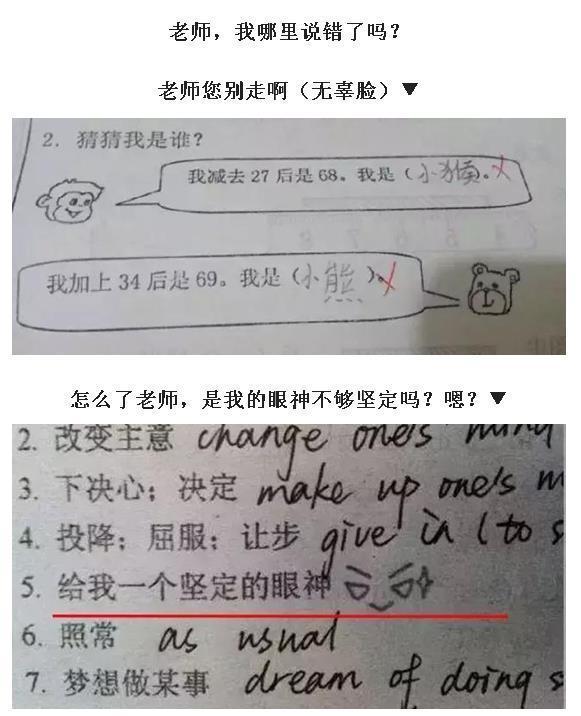 老师，我哪里说错了吗？
老师您别走啊（无辜脸）▼
2. 猜猜我是谁？
我减去 27 后是 68。我是（小猴。
我加上 34 后是 69。我是（小熊）。
怎么了老师，是我的眼神不够坚定吗？嗯？▼
2. 改变主意 change one's mind
3. 下决心；决定 make up one's m
4. 投降；屈服；让步 give in (to s
5. 给我一个坚定的眼神
6. 照常 as usual
7. 梦想做某事 dream of doing s